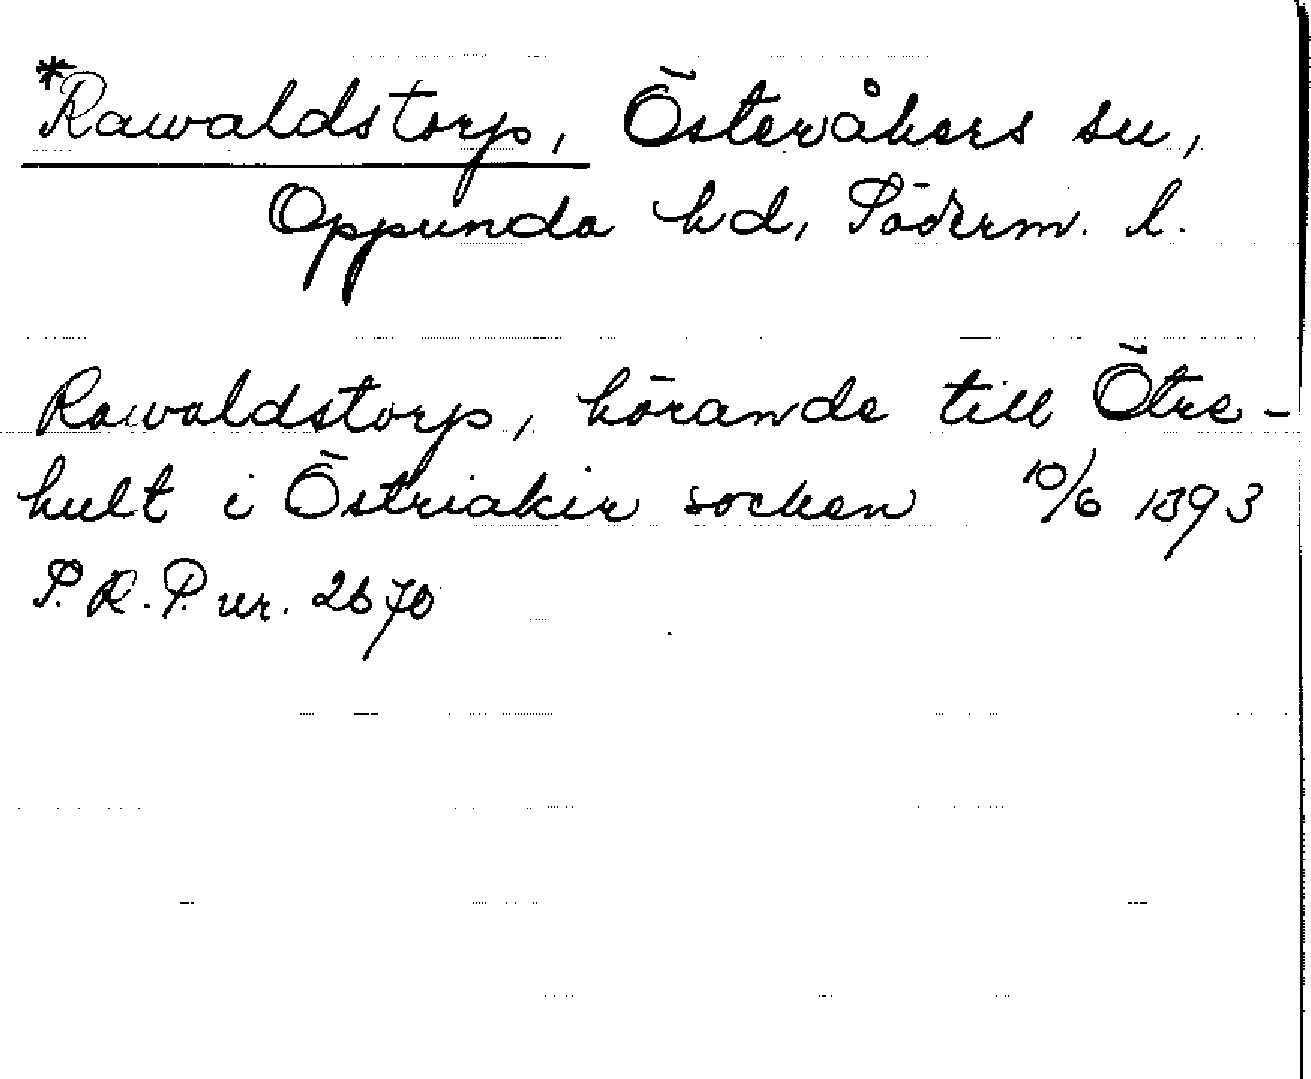 *Rawaldstorp, Österåkers sn,
Oppunda hd, Söderm. l.
Rawaldstorp, hörande till Ötre-
hult i Östriakir socken 10/6 1393
S. R. P. nr. 2670